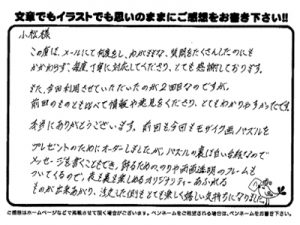 文章でもイラストでも思いのままにご感想をお書き下さい!!
小松様
この度は、メールにて何度もし、わがままな、質問をたくさんしたのにも
かかわらず、毎度、丁寧に対応してくださり、とても感謝しております。
また、今回利用させていただいたのが2回目なのですが、
前回のものとも比べて情報や意見をくださり、とてもわかりやすかったです。
本当にありがとうございます。前回も今回もモザイク画パズルを
プレゼントのためにオーダーしましたが、パズルの裏は白い台紙なので
メッセージも書くことができ、飾るためののりや両面透明のフレームも
ついてくるので、表も裏も楽しめるオリジナリティーあふれる
ものが出来あがり、注文した側もとても楽しく嬉しい気持ちになりました
ご感想はホームページなどで掲載させて頂く場合がございます。ペンネームをご希望される場合は、ペンネームをお書き下さい。